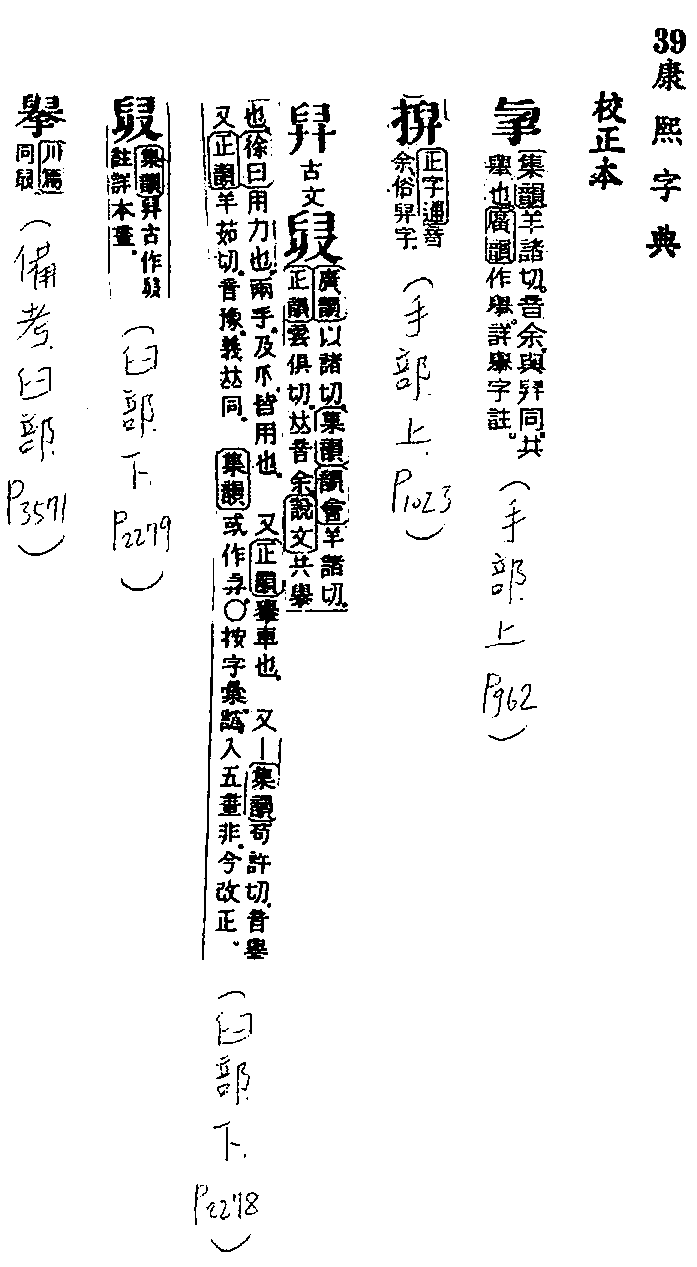 39 康熙字典
校正本
集韻羊諸切。音余。與舁同。共
舉也。廣韻作舉。詳舉字註。
(手部上 P962)
正字通音
余。俗舁字。
(手部上 P1023)
舁 古文
廣韻以諸切。集韻韻會羊諸切。
正韻雲俱切。𠀤音余。說文共舉
也。徐曰用力也。兩手及爪皆用也。 又正韻舉車也。 又丨集韻苟許切。音舉
又正韻羊茹切。音豫。義𠀤同。 集韻或作 〇按字彙 入五畫非。今改正。
(臼部下 P2278)
集韻舁古作
註詳本畫。
(臼部下 P2279)
川篇
同
(備考臼部 P3571)